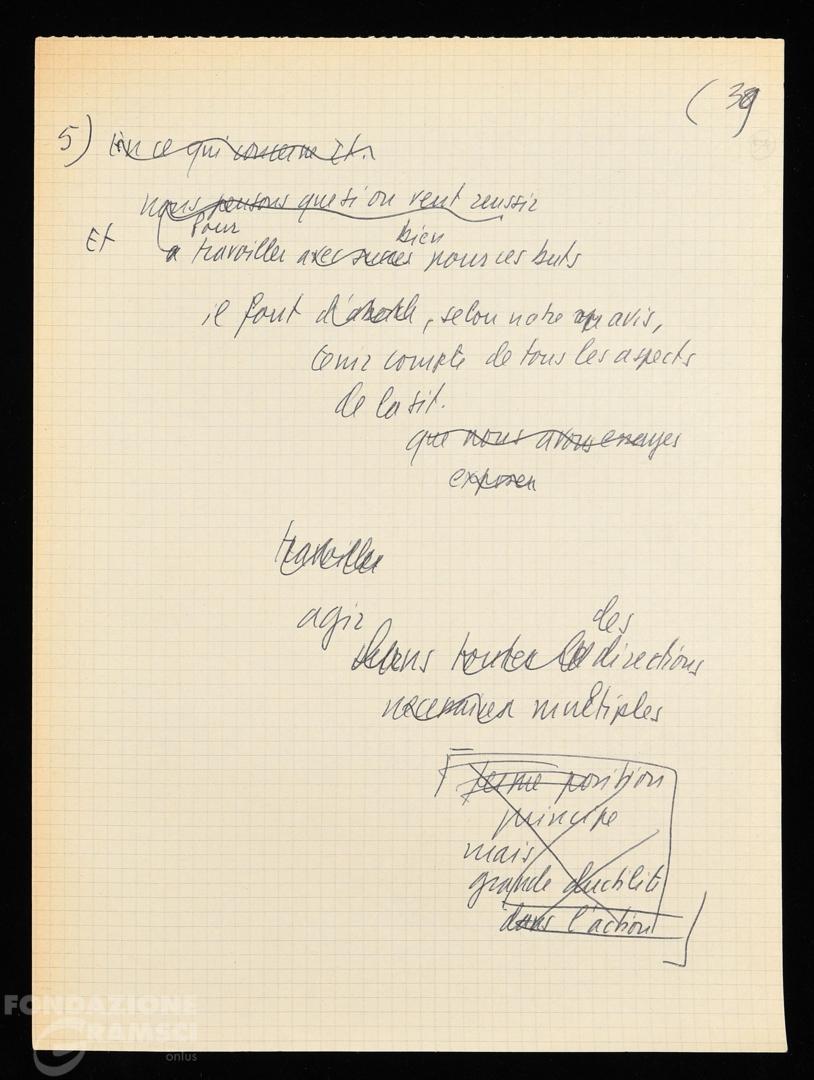 (39
5) En ce qui concerne Et.
nous pensons que si on veut reussir
Pour bien
Et a travailler avec succes pour ces buts
il faut d'abord, selon notre avis,
tenir compte de tous les aspects
de la sit.
que nous avons essayes
exposer
travailler
agir
des
dans toutes les directions
necessaires multiples
ferme position
principe
mais
grande ductilité
dans l'action
FONDAZIONE
GRAMSCI
onlus